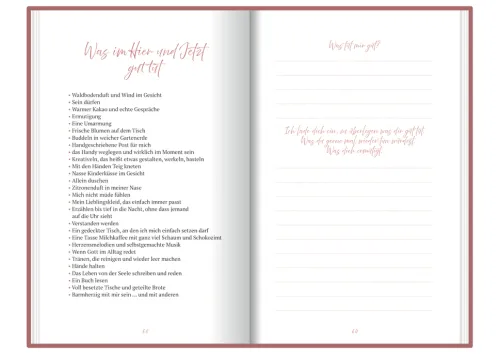 Was im Hier und Jetzt
gut tut
• Waldbodenduft und Wind im Gesicht
• Sein dürfen
• Warmer Kakao und echte Gespräche
• Ermutigung
• Eine Umarmung
• Frische Blumen auf dem Tisch
• Buddeln in weicher Gartenerde
• Handgeschriebene Post für mich
• das Handy weglegen und wirklich im Moment sein
• Kreativeln, das heißt etwas gestalten, werkeln, basteln
• Mit den Händen Teig kneten
• Nasse Kinderküsse im Gesicht
• Allein duschen
• Zitronenduft in meiner Nase
• Mich nicht müde fühlen
• Mein Lieblingskleid, das einfach immer passt
• Erzählen bis tief in die Nacht, ohne dass jemand
auf die Uhr sieht
• Verstanden werden
• Ein gedeckter Tisch, an den ich mich einfach setzen darf
• Eine Tasse Milchkaffee mit ganz viel Schaum und Schokozimt
• Herzensmelodien und selbstgemachte Musik
• Wenn Gott im Alltag redet
• Tränen, die reinigen und wieder leer machen
• Hände halten
• Das Leben von der Seele schreiben und reden
• Ein Buch lesen
• Voll besetzte Tische und geteilte Brote
• Barmherzig mit mir sein ... und mit anderen
Was tut mir gut?
Ich lade dich ein, zu überlegen was dir gut tut.
Was dich ermutigt.